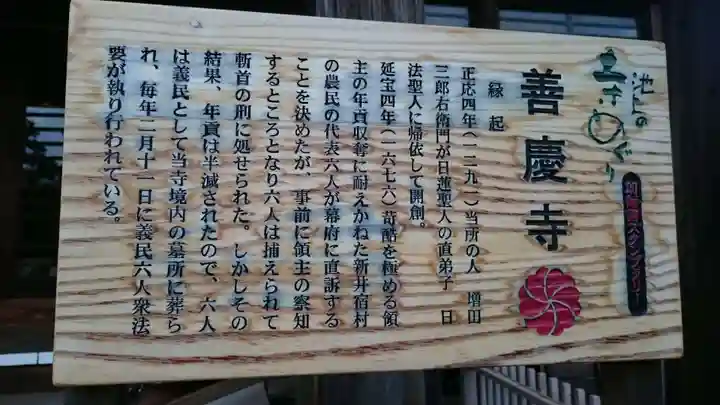 池上の
まちめぐり
スタンプラリー
善慶寺
縁起
正応四年(一二九一)当所の人 増田
三郎右衛門が日蓮聖人の直弟子 日
法聖人に帰依して開創。
延宝四年(一六七六)苛酷を極める領
主の年貢収奪に耐えかねた新井宿村
の農民の代表六人が幕府に直訴する
ことを決めたが、事前に領主の察知
するところとなり六人は捕えられて
斬首の刑に処せられた。しかしその
結果、年貢は半減されたので、六人
は義民として当寺境内の墓所に葬ら
れ、毎年二月十一日に義民六人衆法
要が執り行われている。